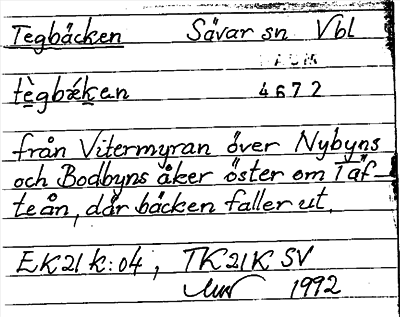 Tegbäcken Sävar sn Vbl
tègbæ̀ken 4672
från Vitermyran över Nybyns
och Bodbyns åker öster om Täf-
teån, där bäcken faller ut.
EK21k:04, TK21K SV
1992